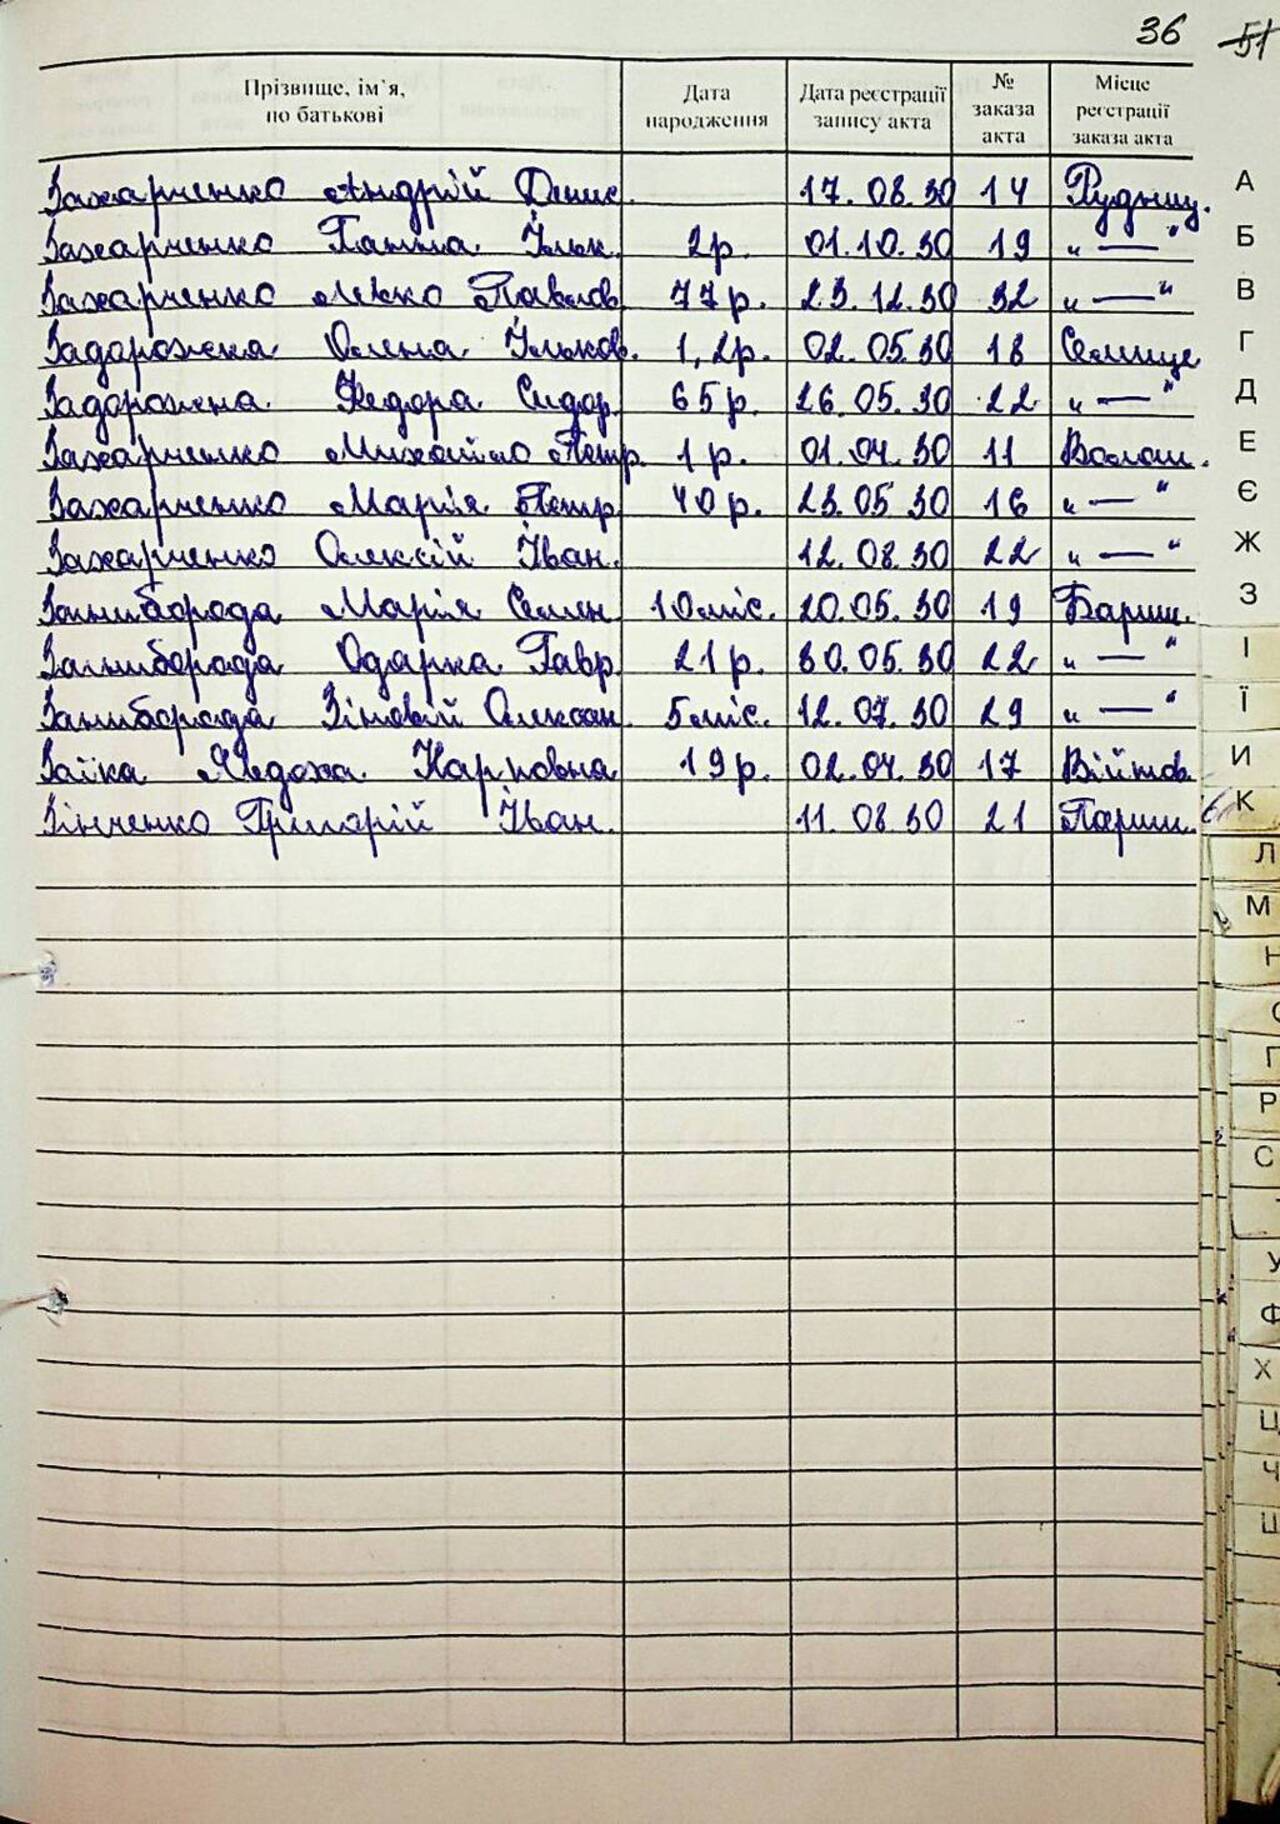 36 51
Прізвище, ім'я, по батькові
Дата народження
Дата реєстрації запису акта
№ заказа акта
Місце реєстрації заказа акта
Захарченко Андрій Денис. 17.08.30 14 Рудниц.
Захарченко Ганна Ільк. 2р. 01.10.30 19 "—"
Захарченко Павлов. 77р. 23.12.30 32 "—"
Задорожна Олена Ільков. 1,2р. 02.05.30 18 Селище
Задорожна Федора Сидор. 65р. 26.05.30 22 "—"
Захарченко Михайло Петр. 1р. 01.04.30 11 Волош.
Захарченко Марія Петр. 40р. 23.05.30 16 "—"
Захарченко Олексій Іван. 12.08.30 22 "—"
Заниборода Марія Семен. 10міс. 20.05.30 19 Бориш.
Заниборода Одарка Гавр. 21р. 30.05.30 22 "—"
Заниборода Зіновій Олексан. 5міс. 12.07.30 29 "—"
Заїка Явдоха Карповна 19р. 02.04.30 17 Війтов.
Зінченко Григорій Іван. 11.08.30 21 Париш.
А
Б
В
Г
Д
Е
Є
Ж
З
І
Ї
И
К
Л
М
Н
С
П
Р
С
У
Ф
Х
Ц
Ч